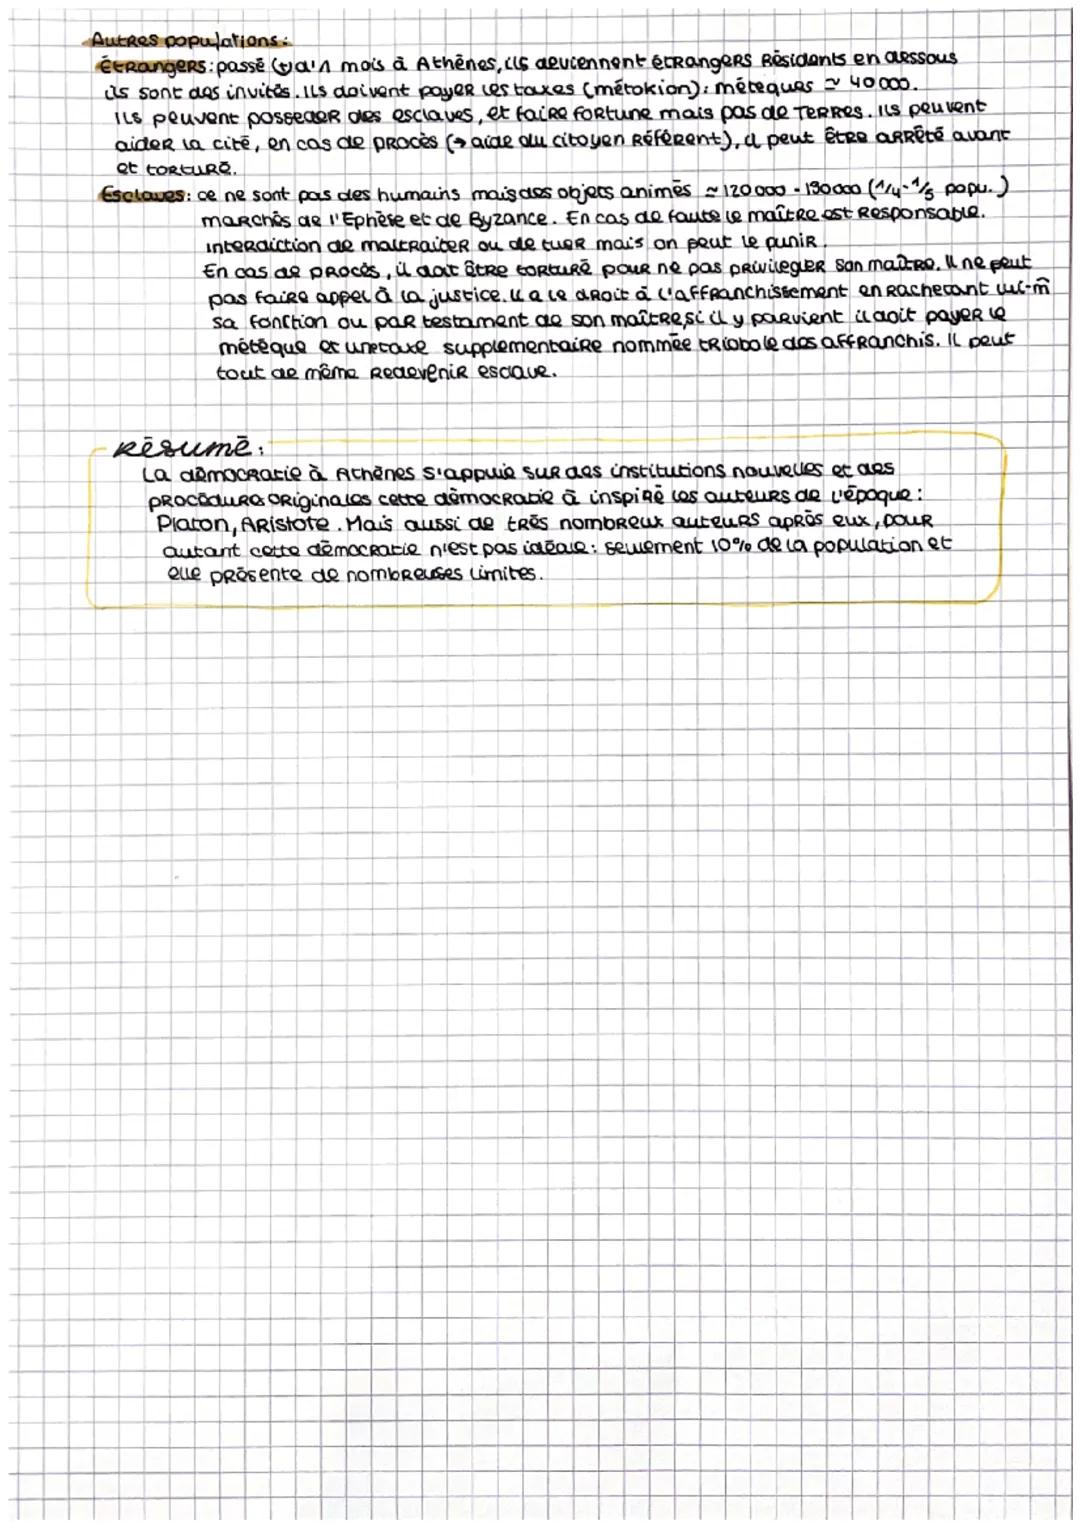 Autres populations :
étrangers : passé (+) d'1 mois à Athènes, ils deviennent étrangers Résidents en dessous
ils sont des invités. Ils doivent payer les taxes (métokion) : métèques ≃ 40 000.
Ils peuvent posseder des esclaves, et faire fortune mais pas de TERRES. Ils peuvent
aider la cité, en cas de procès (→ aide du citoyen Référent), il peut être arrêté avant
et torturé.
Esclaves : ce ne sont pas des humains mais des objets animés ≃ 120 000 - 130 000 (1/4 - 1/3 popu.)
marchés de l'Ephèse et de Byzance. En cas de faute le maître est Responsable.
interdiction de maltraiter ou de tuer mais on peut le punir.
En cas de procès, il doit être torturé pour ne pas privilegier son maître. Il ne peut
pas faire appel à la justice. Il a le droit à l'affranchissement en rachetant lui-m̂
sa fonction ou par testament de son maître, si il y parvient il doit payer le
métèque et une taxe supplementaire nommée triobole des affranchis. Il peut
tout de même redevenir esclave.
Résumé :
La démocratie à Athènes s'appuie sur des institutions nouvelles et des
procédures originales cette démocratie à inspiré les auteurs de l'époque :
Platon, Aristote. Mais aussi de très nombreux auteurs après eux, pour
autant cette démocratie n'est pas idéale : seulement 10% de la population et
elle présente de nombreuses limites.